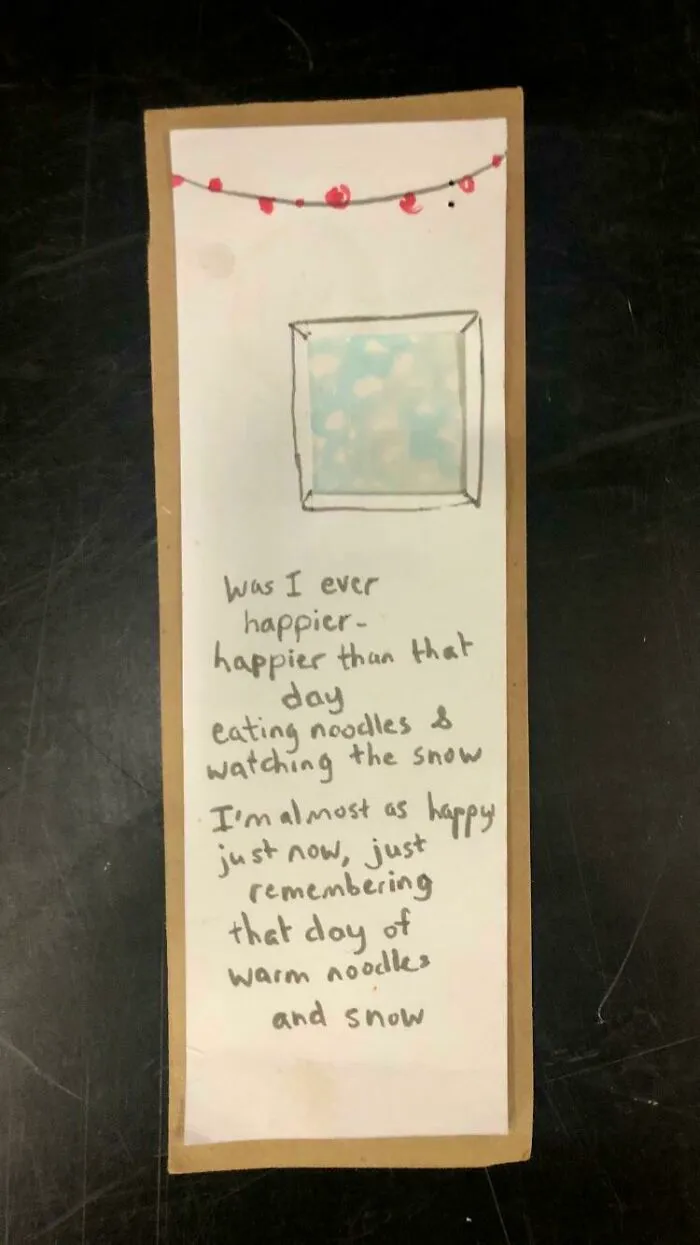 Was I ever
happier-
happier than that
day
eating noodles &
watching the snow
I'm almost as happy
just now, just
remembering
that day of
warm noodles
and snow